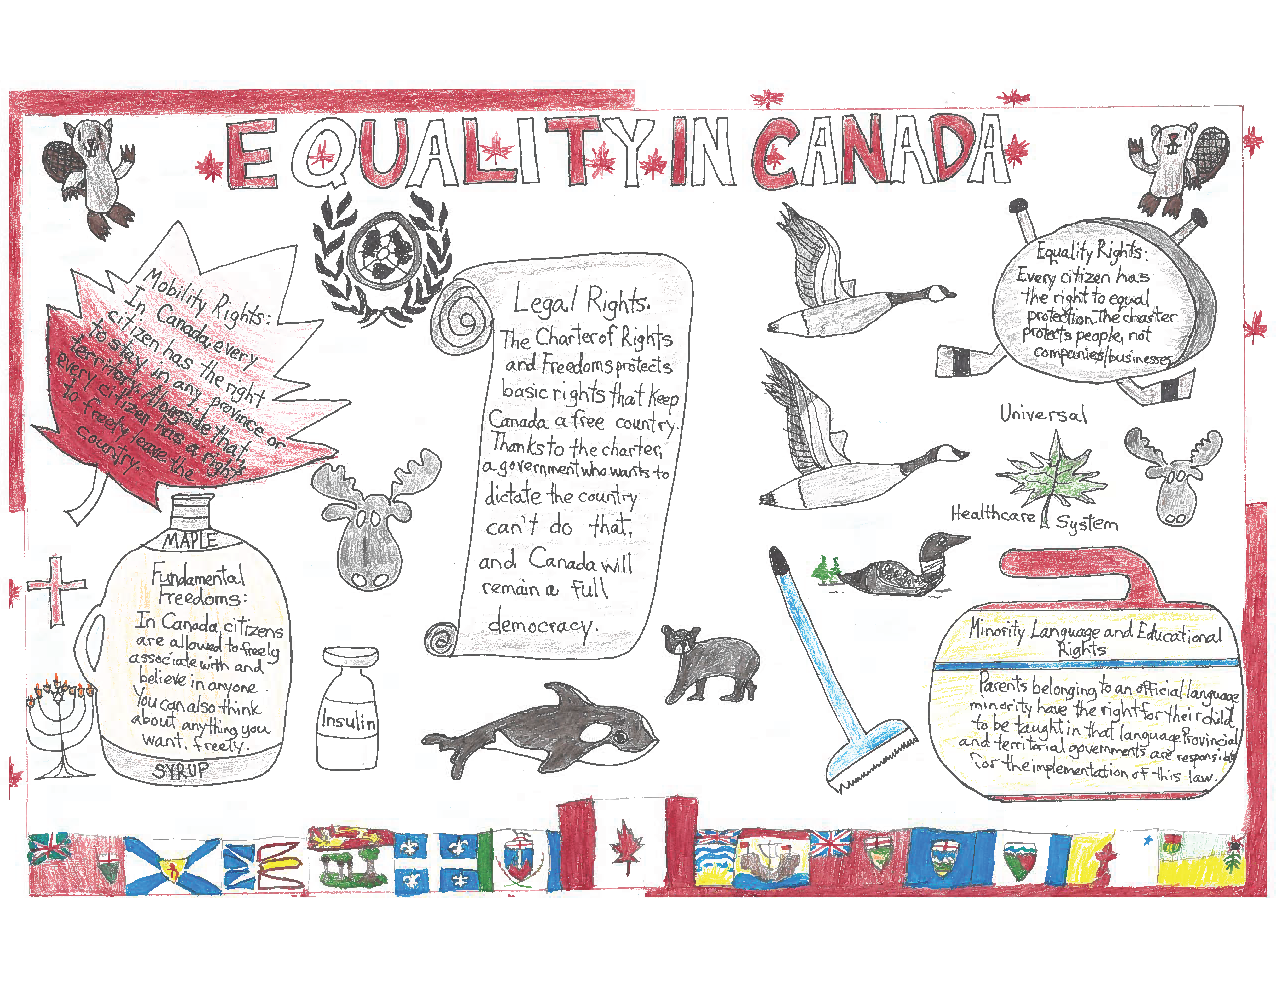 EQUALITY IN CANADA
Mobility Rights:
In Canada, every
citizen has the right
to stay in any province or
territory. Alongside that,
every citizen has a right
to freely leave the
country.
Legal Rights.
The Charter of Rights
and Freedoms protects
basic rights that keep
Canada a free country.
Thanks to the charter,
a government who wants to
dictate the country
can't do that,
and Canada will
remain a full
democracy.
Equality Rights:
Every citizen has
the right to equal
protection. The charter
protects people, not
companies/businesses
Universal
Healthcare System
MAPLE
Fundamental
Freedoms:
In Canada, citizens
are allowed to freely
associate with and
believe in anyone.
You can also think
about anything you
want, freely.
SYRUP
Insulin
Minority Language and Educational
Rights
Parents belonging to an official language
minority have the right for their child
to be taught in that language. Provincial
and territorial governments are responsible
for the implementation of this law.